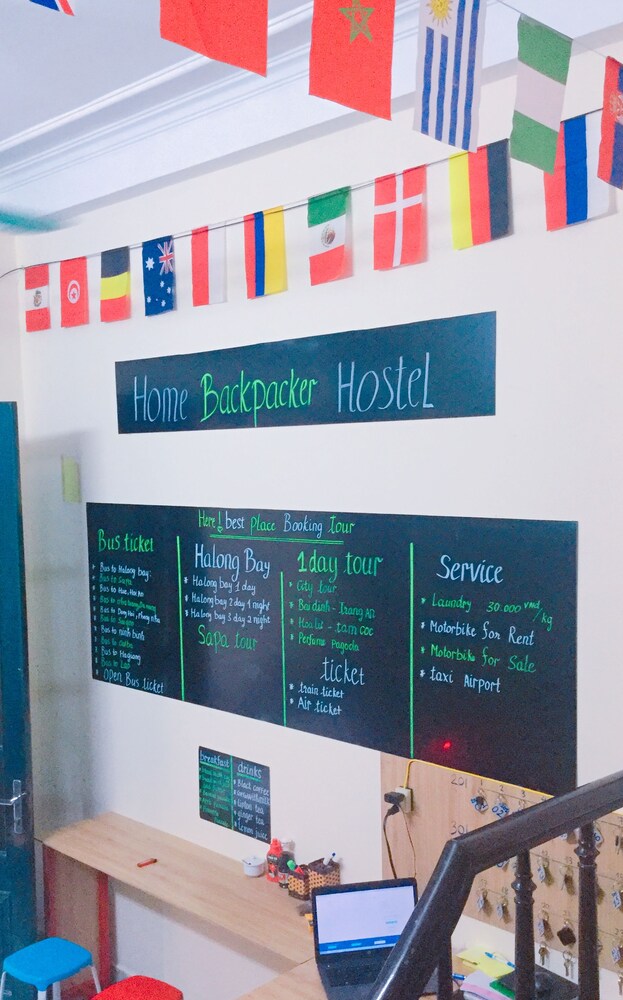 Home Backpacker Hostel
Here! best place Booking Tour
Bus ticket
* Bus to Halong bay
* Bus to Sapa
* Bus to Hue, Hoi An
* Bus to
* Bus to
* Bus to ninh binh
* Bus to
* Bus to Hagiang
* Bus to Lao
* Open Bus ticket
Halong Bay
* Halong bay 1 day
* Halong bay 2 day 1 night
* Halong bay 3 day 2 night
Sapa tour
1 day tour
* City tour
* Bai dinh - Trang An
* Hoa lu - tam coc
* Perfume pagoda
ticket
* train ticket
* Air ticket
Service
* Laundry 30.000 vnd/kg
* Motorbike for Rent
* Motorbike for Sale
* taxi Airport
breakfast
drinks
* Black coffee
* Lipton tea
* ginger tea
* Lemon juice
201
301